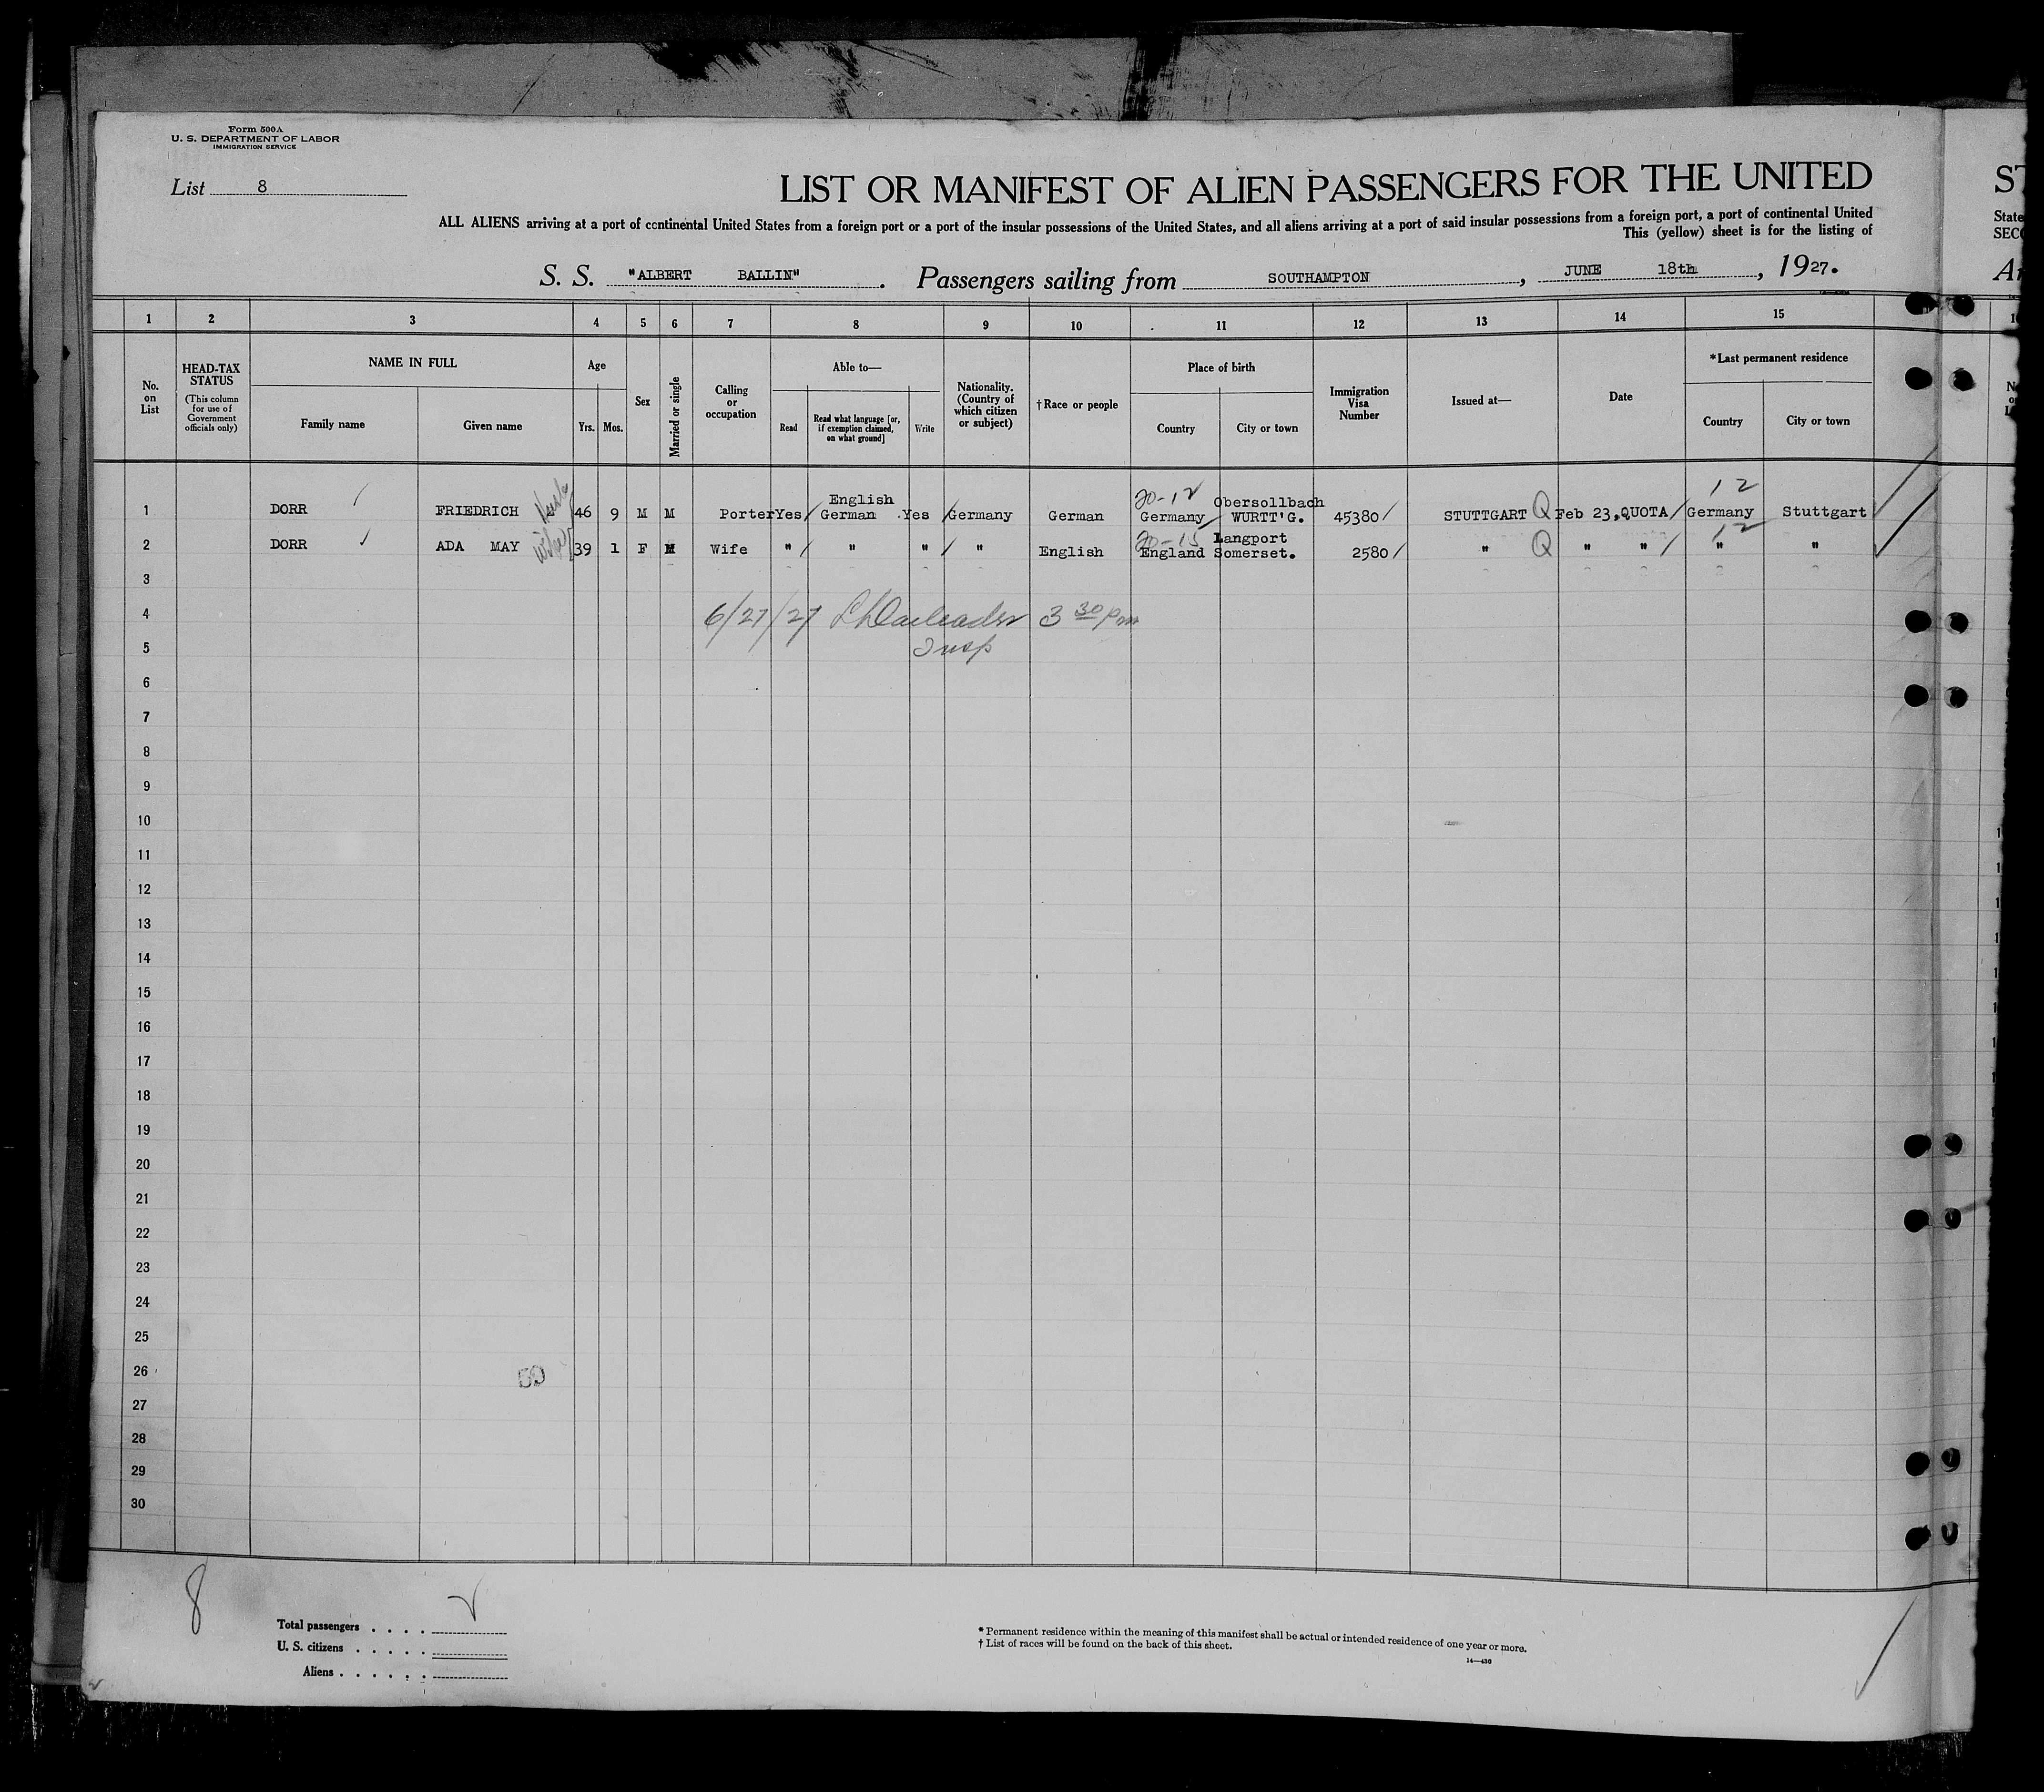 Form 500A
U. S. DEPARTMENT OF LABOR
IMMIGRATION SERVICE
List 8
LIST OR MANIFEST OF ALIEN PASSENGERS FOR THE UNITED
ALL ALIENS arriving at a port of continental United States from a foreign port or a port of the insular possessions of the United States, and all aliens arriving at a port of said insular possessions from a foreign port, a port of continental United
This (yellow) sheet is for the listing of
State
SEC
S. S. "ALBERT BALLIN". Passengers sailing from SOUTHAMPTON, JUNE 18th, 1927.
1 2 3 4 5 6 7 8 9 10 11 12 13 14 15
No. on List
HEAD-TAX STATUS
(This column for use of Government officials only)
NAME IN FULL
Family name
Given name
Age
Yrs. Mos.
Sex
Married or single
Calling or occupation
Able to—
Read
Read what language [or, if exemption claimed, on what ground]
Write
Nationality. (Country of which citizen or subject)
†Race or people
Place of birth
Country
City or town
Immigration Visa Number
Issued at—
Date
*Last permanent residence
Country
City or town
20-12 12
English Obersollbach
1 DORR FRIEDRICH 46 9 M M Porter Yes German Yes Germany German Germany WURTT'G. 45380 STUTTGART Q Feb 23, QUOTA Germany Stuttgart
20-15 Langport 12
2 DORR ADA MAY wife 39 1 F M Wife " " " " English England Somerset. 2580 " Q " " " "
3
4 6/27/27 3 30 Pm
5 Insp
6
7
8
9
10
11
12
13
14
15
16
17
18
19
20
21
22
23
24
25
26
50
27
28
29
30
8
Total passengers . . . .
U. S. citizens . . . . .
Aliens . . . . . .
* Permanent residence within the meaning of this manifest shall be actual or intended residence of one year or more.
† List of races will be found on the back of this sheet.
14—430